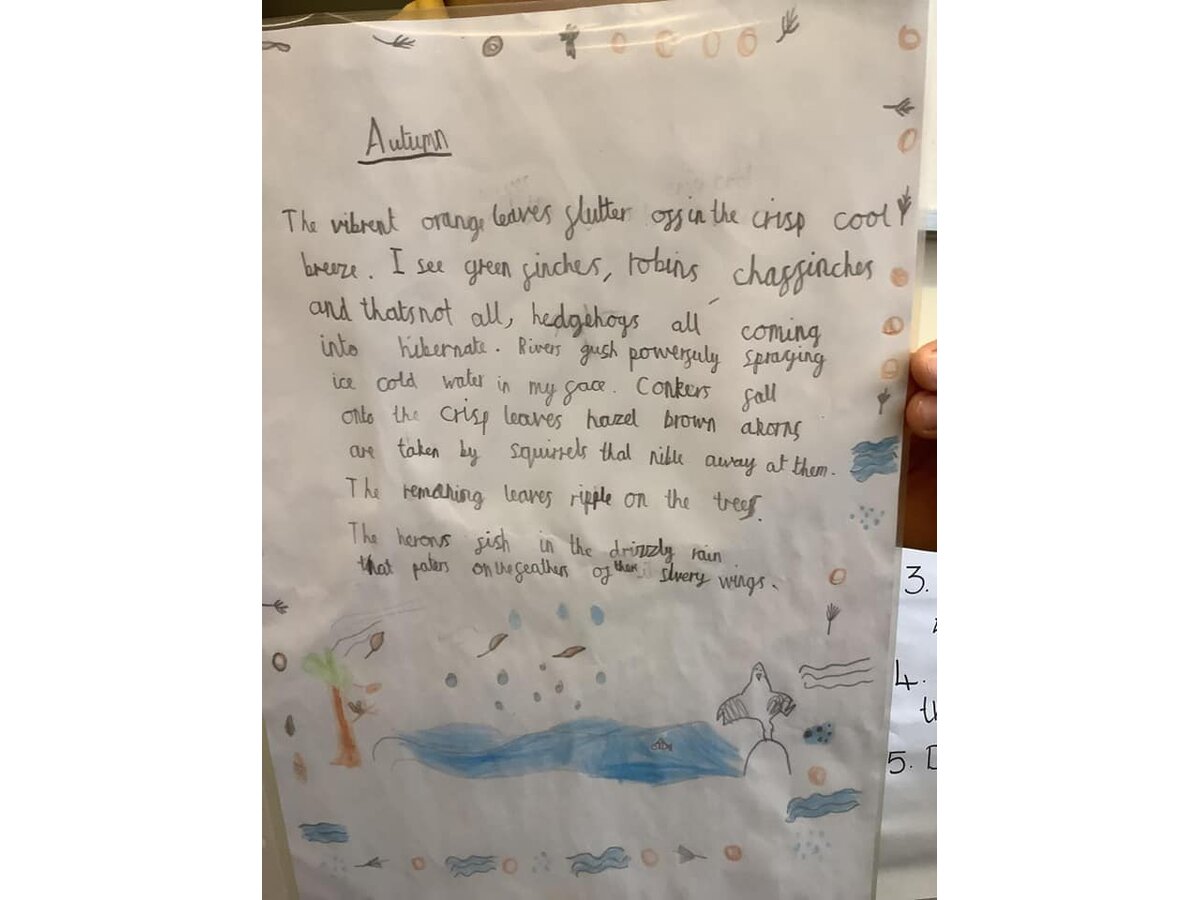 Autumn
The vibrent orange leaves flutter off in the crisp cool
breeze. I see green finches, robins chaffinches
and thatsnot all, hedgehogs all coming
into hibernate. Rivers gush powerfuly spraying
ice cold water in my face. Conkers fall
onto the crisp leaves hazel brown akorns
are taken by squirrels that nible away at them.
The remaining leaves ripple on the trees.
The herons fish in the drizzly rain
that paters on the feathers of their slvery wings.
3.
4.
th
5. D